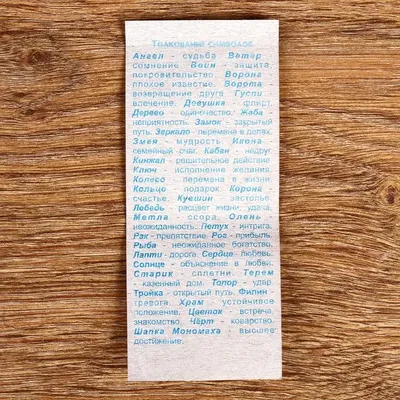 Толкование символов
Ангел - судьба Ветер -
сомнение Воин - защита,
покровительство Ворона -
плохое известие. Ворота -
возвращение друга Гусли -
влечение. Девушка - флирт.
Дерево - одиночество. Жаба -
неприятность. Замок - закрытый
путь. Зеркало - перемена в делах.
Змея - мудрость. Икона -
семейный очаг. Кабан - недуг.
Кинжал - решительное действие
Ключ - исполнение желания.
Колесо - перемена в жизни.
Кольцо - подарок Корона -
счастье. Кувшин - застолье.
Лебедь - расцвет жизни, удача.
Метла - ссора. Олень -
неожиданность. Петух - интрига.
Рак - препятствие. Рог - прибыль.
Рыба - неожиданное богатство.
Лапти - дорога. Сердце - любовь.
Солнце - объяснение в любви.
Старик - сплетни. Терем
- казенный дом. Топор - удар.
Тройка - открытый путь. Филин -
тревога. Храм - устойчивое
положение. Цветок - встреча,
знакомство. Чёрт - коварство.
Шапка Мономаха - высшее
достижение.